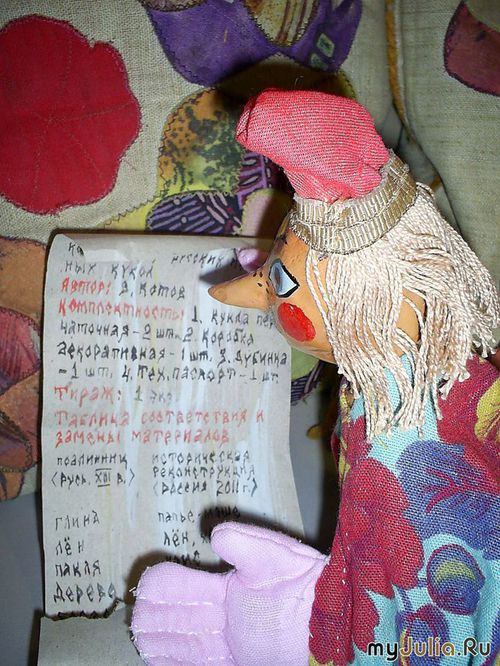 ных кукол русских
Автор: Э. Котов
Комплектность: 1. кукла пер
чаточная - 2 шт. 2. коробка
декоративная - 1 шт. 3. дубинка
- 1 шт. 4. тех. паспорт - 1 шт
Тираж: 1 экз.
Таблица соответствия и
замены материалов
подлинниц историческая
реконструкция
(Русь. XIII в.) (Россия 2011 г.)
глина папье-маше
лён лён,
пакля
дерево
myJulia.Ru